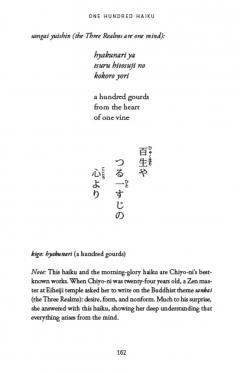 ONE HUNDRED HAIKU
sangai yuishin (the Three Realms are one mind):
hyakunari ya
tsuru hitosuji no
kokoro yori
a hundred gourds
from the heart
of one vine
百生や
つる一すじの
心より
kigo: hyakunari (a hundred gourds)
Note: This haiku and the morning-glory haiku are Chiyo-ni's best-
known works. When Chiyo-ni was twenty-four years old, a Zen mas-
ter at Eiheiji temple asked her to write on the Buddhist theme sankai
(the Three Realms): desire, form, and nonform. Much to his surprise,
she answered with this haiku, showing her deep understanding that
everything arises from the mind.
162